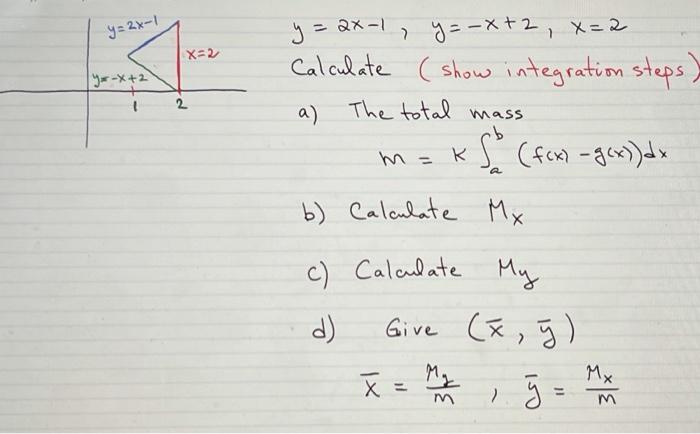 y=2x-1
x=2
y=-x+2
1
2
y = 2x-1 , y=-x+2 , x=2
Calculate (show integration steps)
a) The total mass
m = K ∫_a^b (f(x) - g(x))dx
b) Calculate Mx
c) Calculate My
d) Give (x̄, ȳ)
x̄ = My/m , ȳ = Mx/m